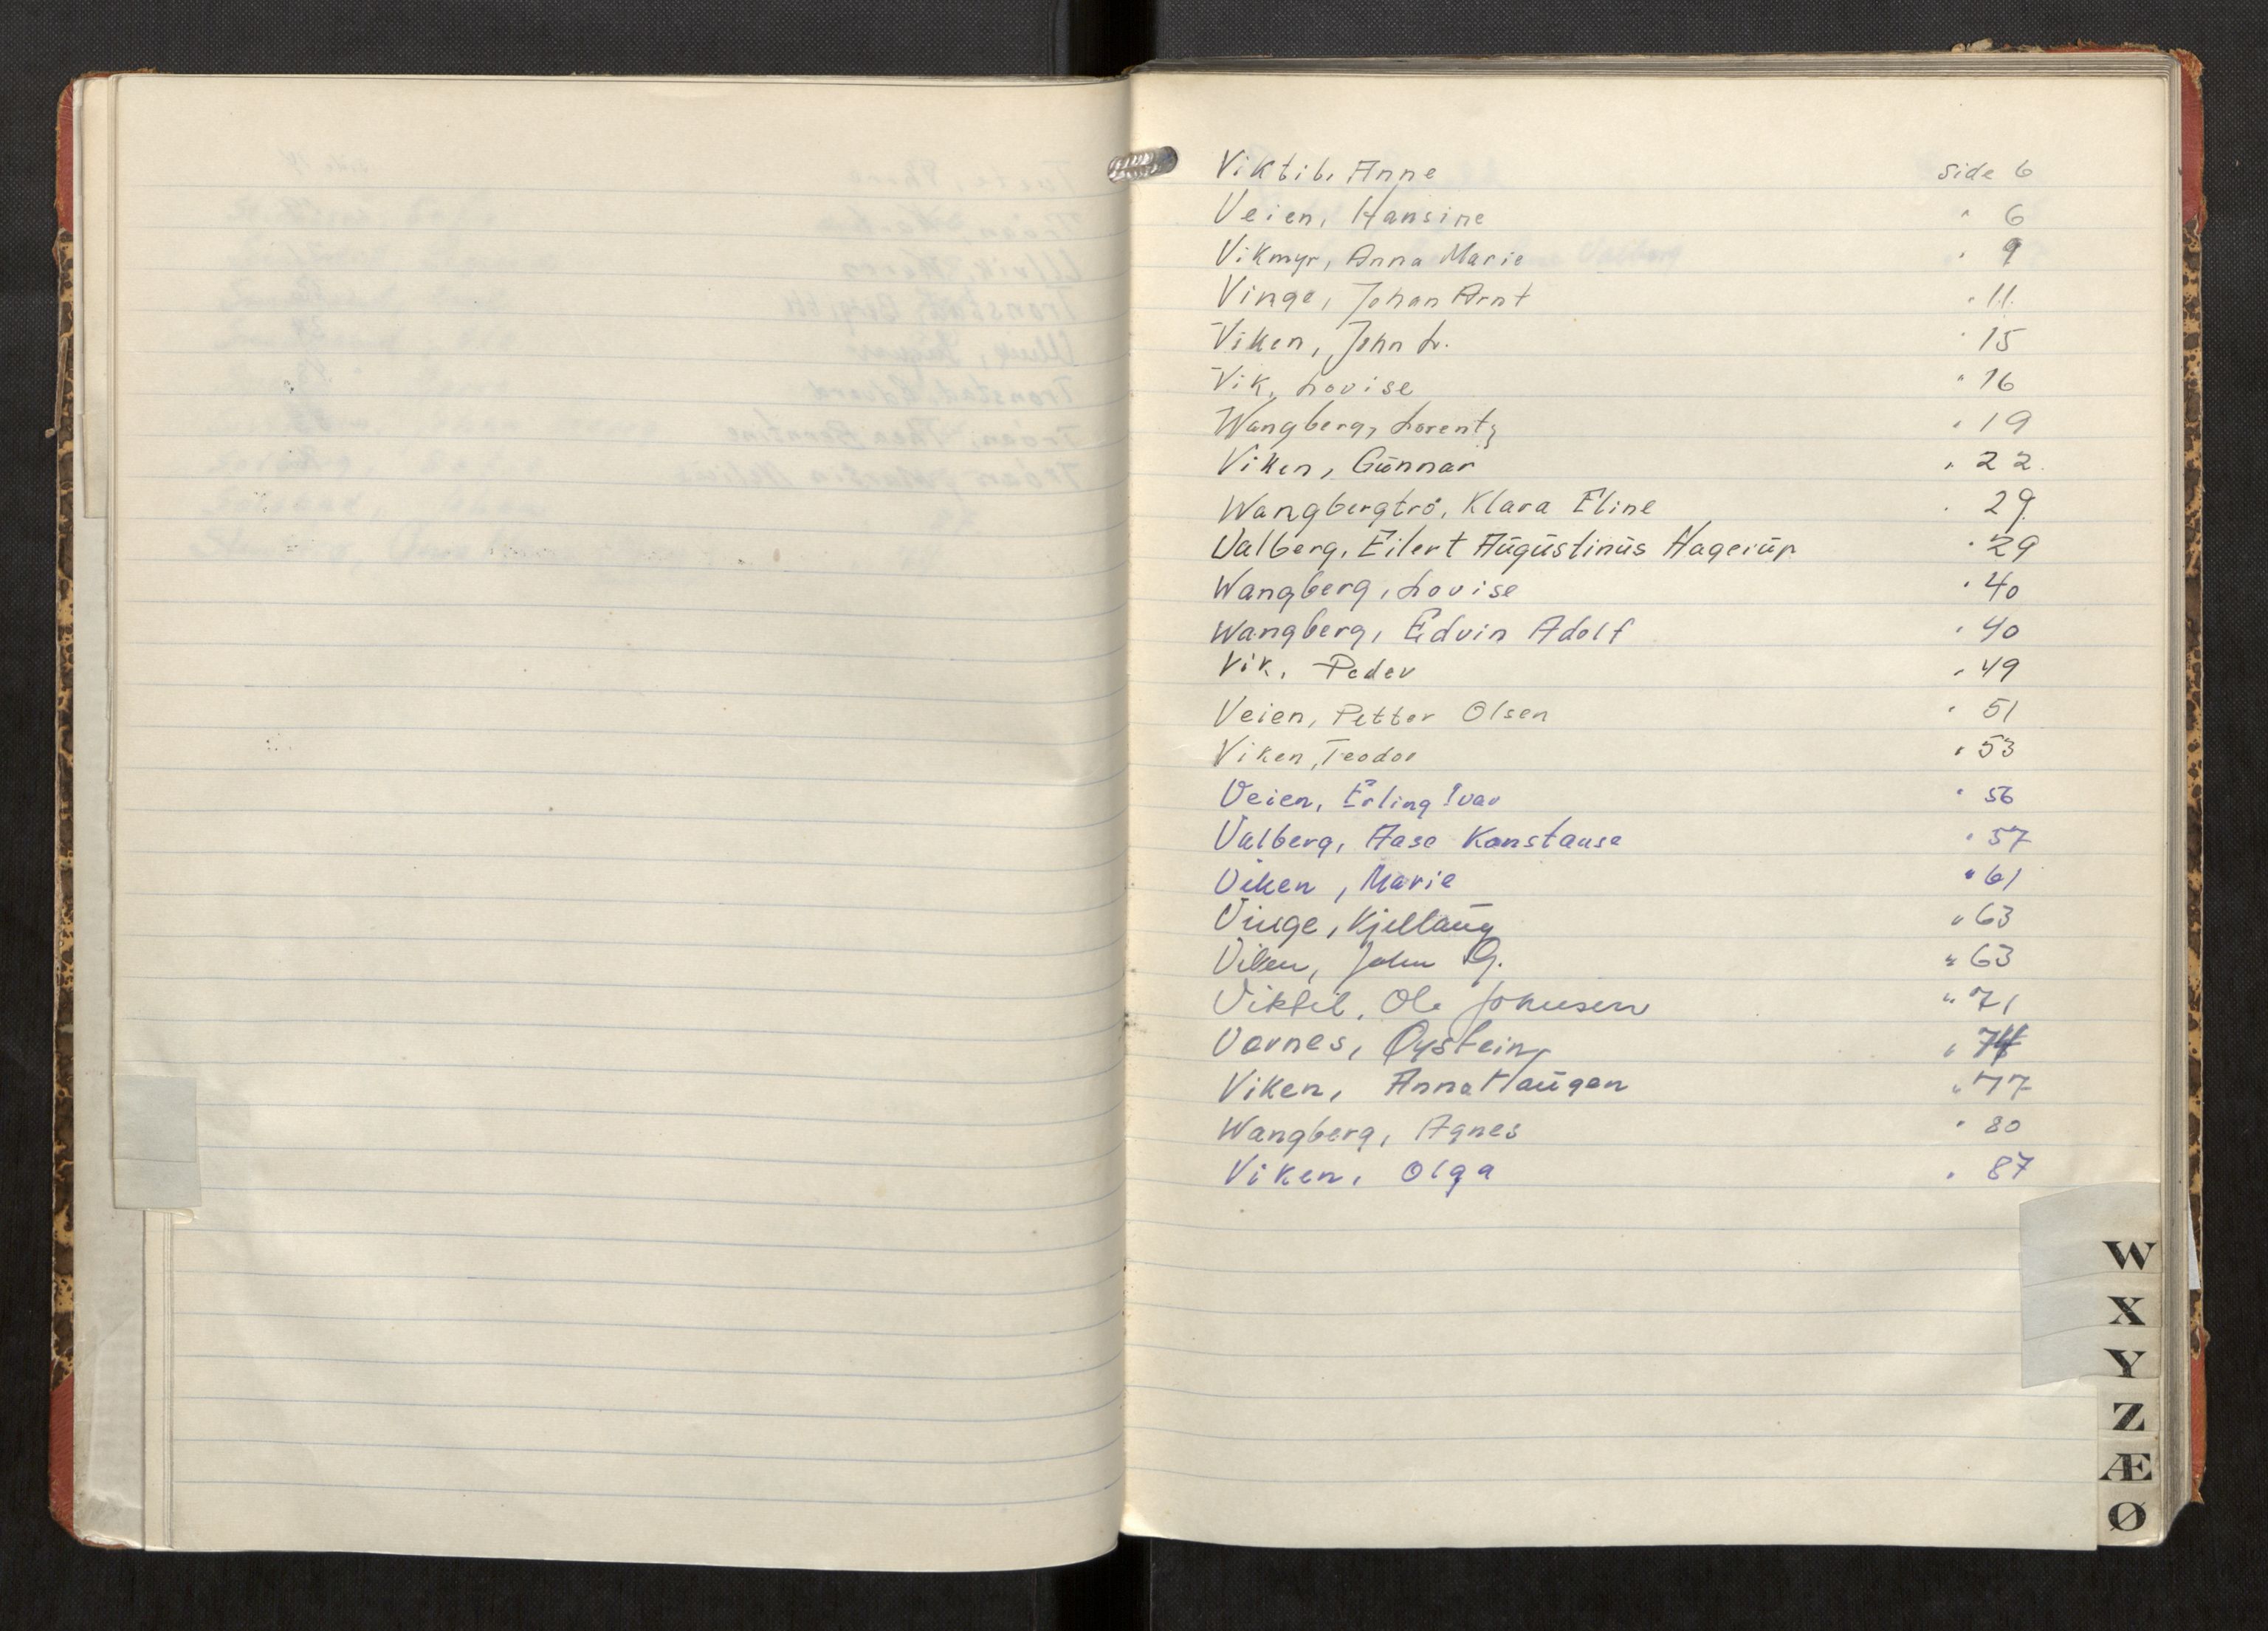 Viktil, Anne side 6
Veien, Hansine " 6
Vikmyr, Anna Marie " 9
Vinge, Johan Arnt " 11
Viken, John L. " 15
Vik, Lovise " 16
Wangberg, Lorentz " 19
Viken, Gunnar " 22
Wangbergtrø, Klara Eline " 29
Valberg, Eilert Augustinus Hagerup " 29
Wangberg, Lovise " 40
Wangberg, Edvin Adolf " 40
Vik, Peder " 49
Veien, Petter Olsen " 51
Viken, Teodor " 53
Veien, Erling Ivar " 56
Valberg, Aase Konstanse " 57
Viken, Marie " 61
Vinge, Kjellaug " 63
Viken, John G. " 63
Viktil, Ole Johnsen " 71
Vornes, Øystein " 74
Viken, Anna Haugen " 77
Wangberg, Agnes " 80
Viken, Olga " 87
W
X
Y
Z
Æ
Ø